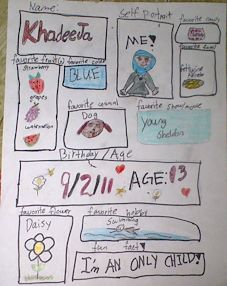 Name:
Khadeeja
Self Portrait
ME!
favorite candy
favorite food
fettuccine
Alfredo
favorite fruit(s)
Strawberry
grapes
watermelon
favorite color
BLUE
favorite animal
Dog
favorite show/movie
Young
Sheldon
Birthday/Age
9/2/11
AGE: 13
favorite flower
Daisy
favorite hobby
Swimming
fun fact
I'm AN ONLY CHILD!